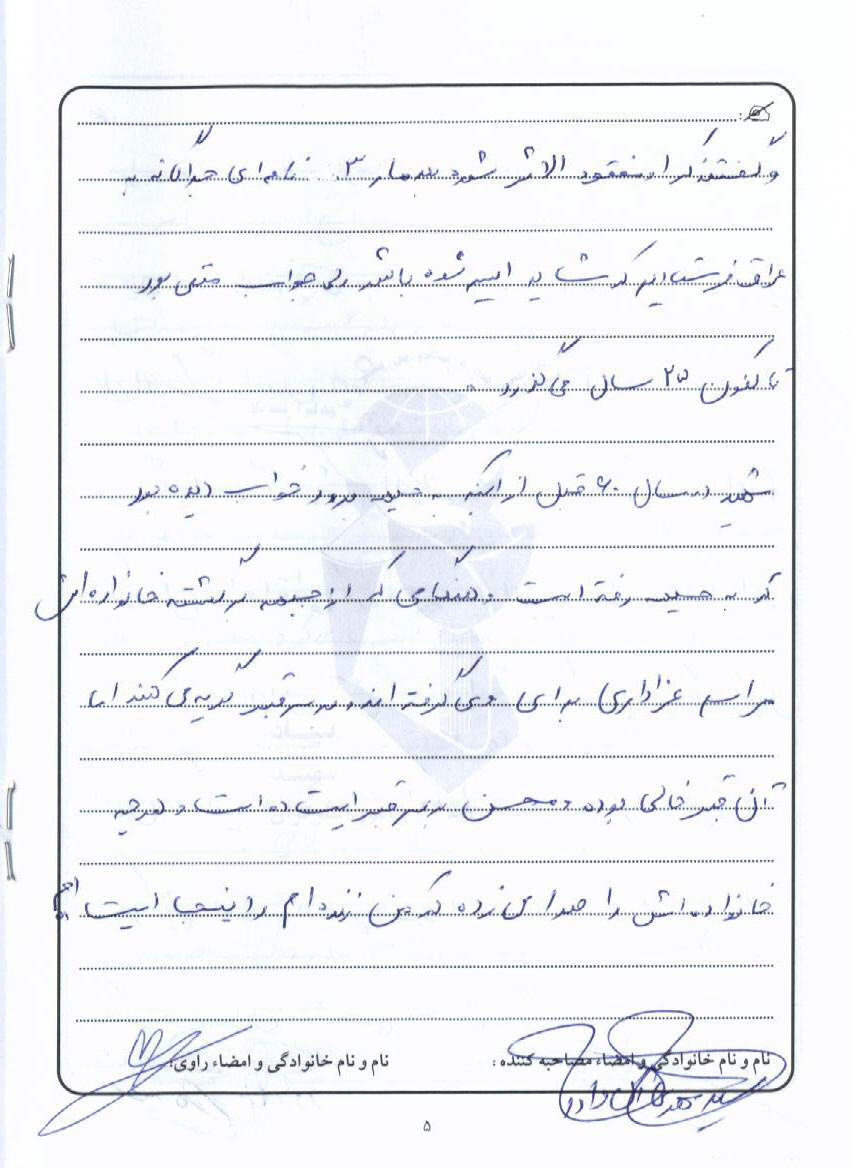 و گفتند که او مفقود الاثر شده بعد ما ۳ نامه‌ای جداگانه به
عراق فرستادیم که شاید اسیر شده باشد ولی جواب منفی بود
تا کنون ۲۵ سال می‌گذرد.
شهید در سال ۶۰ قبل از اینکه به جبهه برود خواب دیده بود
که به جبهه رفته است و هنگامی که از جبهه برگشته خانواده‌اش
مراسم عزاداری برای وی گرفته‌اند و بر سر قبر گریه می‌کنند اما
آن قبر خالی بوده و محسن بر سر قبر ایستاده است و هر چه
خانواده‌اش را صدا می‌زده که من زنده‌ام و اینجا ایستاده‌ام
نام و نام خانوادگی و امضاء مصاحبه کننده :
نام و نام خانوادگی و امضاء راوی:
۵